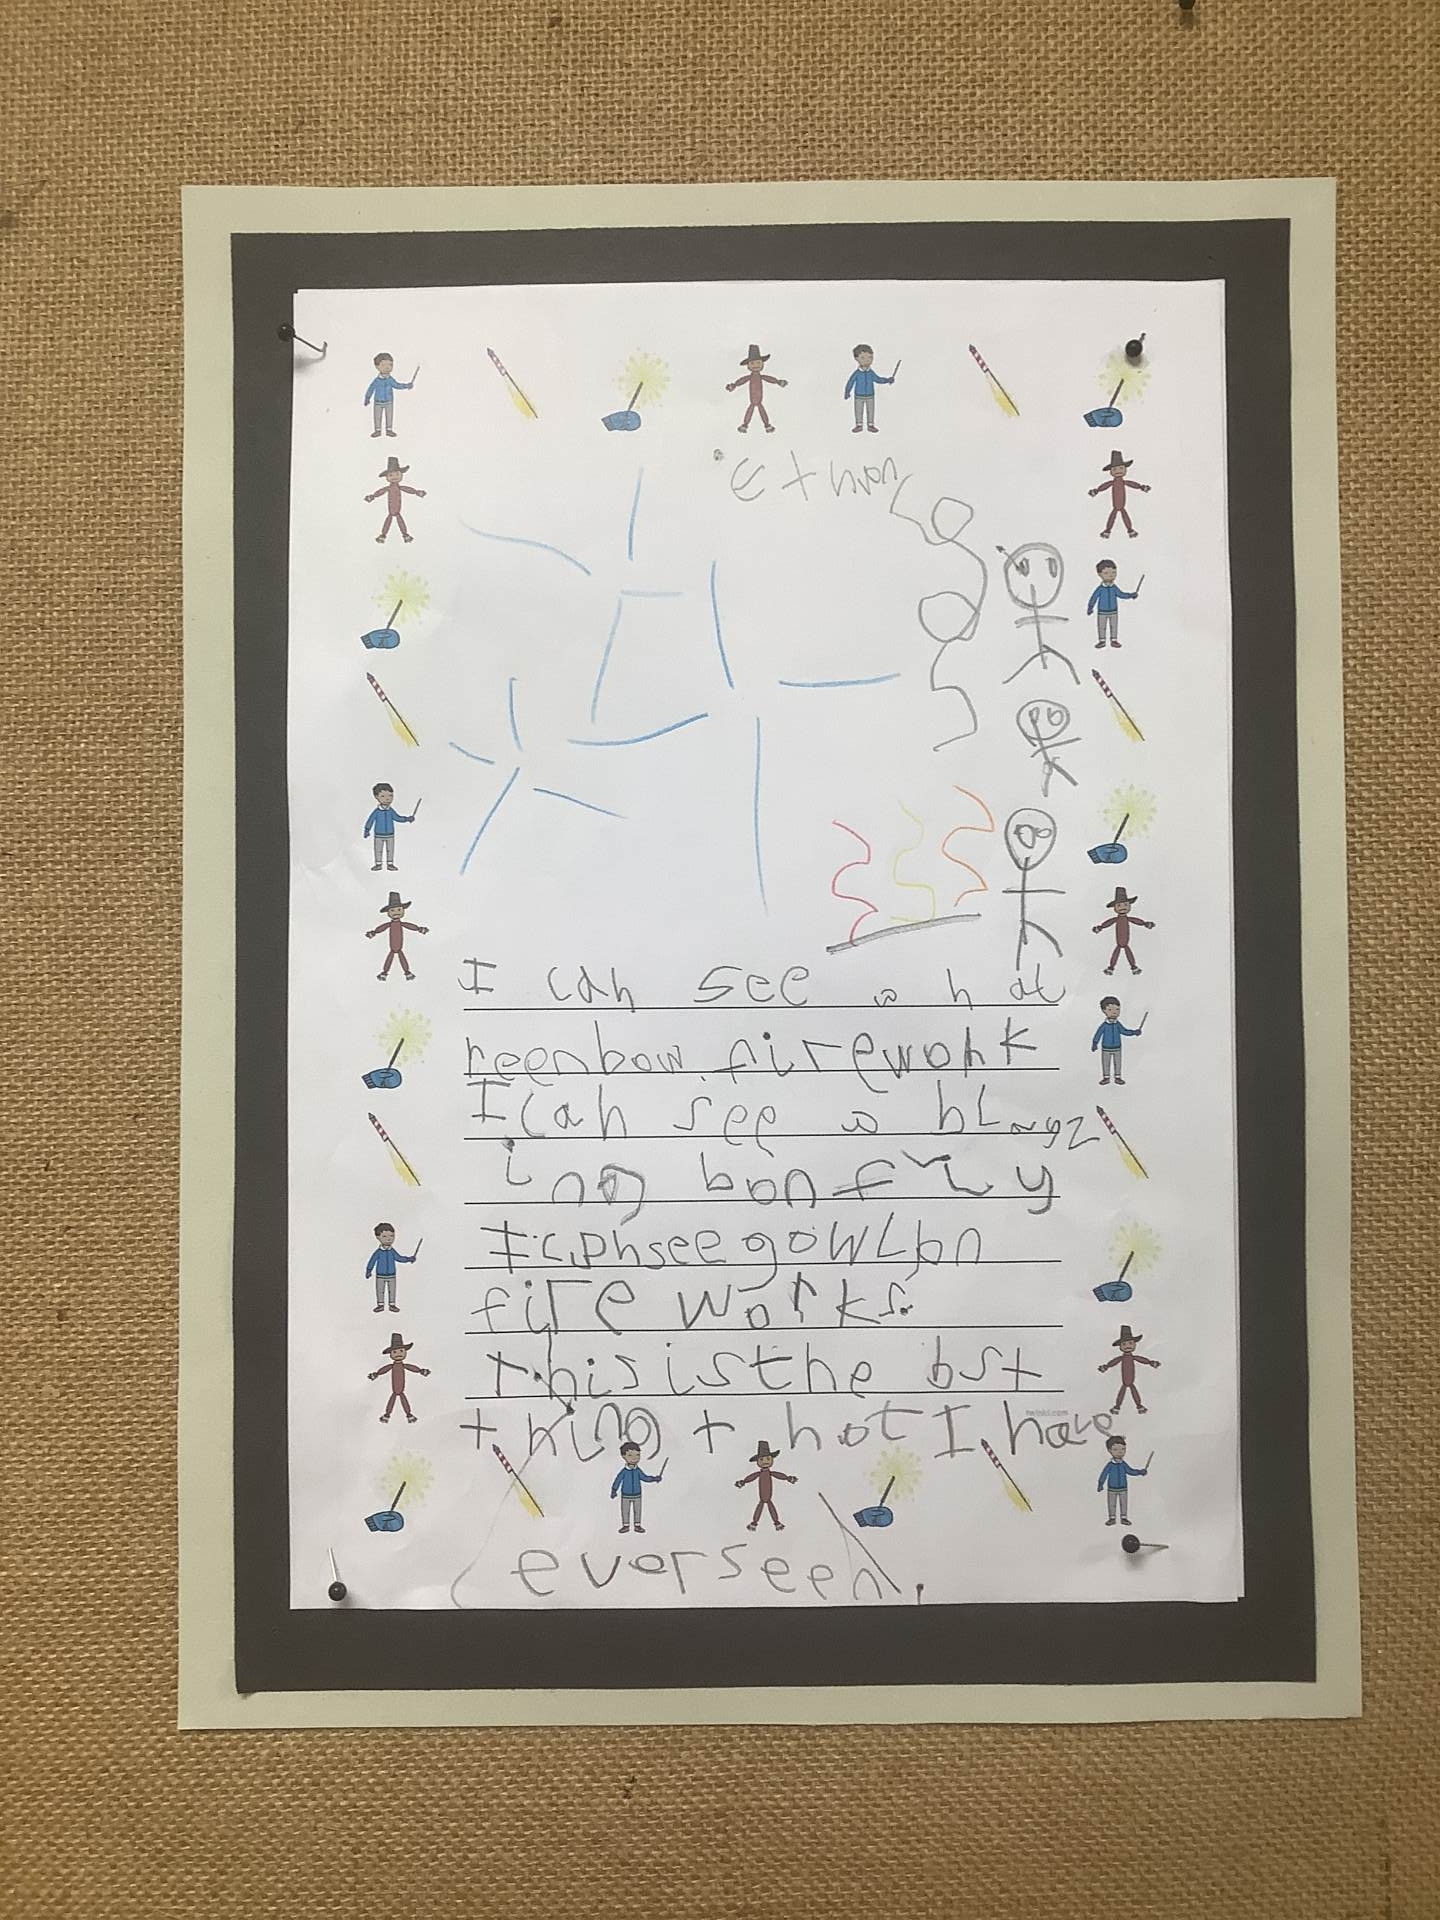 Ethan
I can see a hot
reenbow firework
I can see a blayz
ing bonfiy
I can see gowldn
fire works.
this is the bst
thing t hot I have
twinkl.com
ever seen.